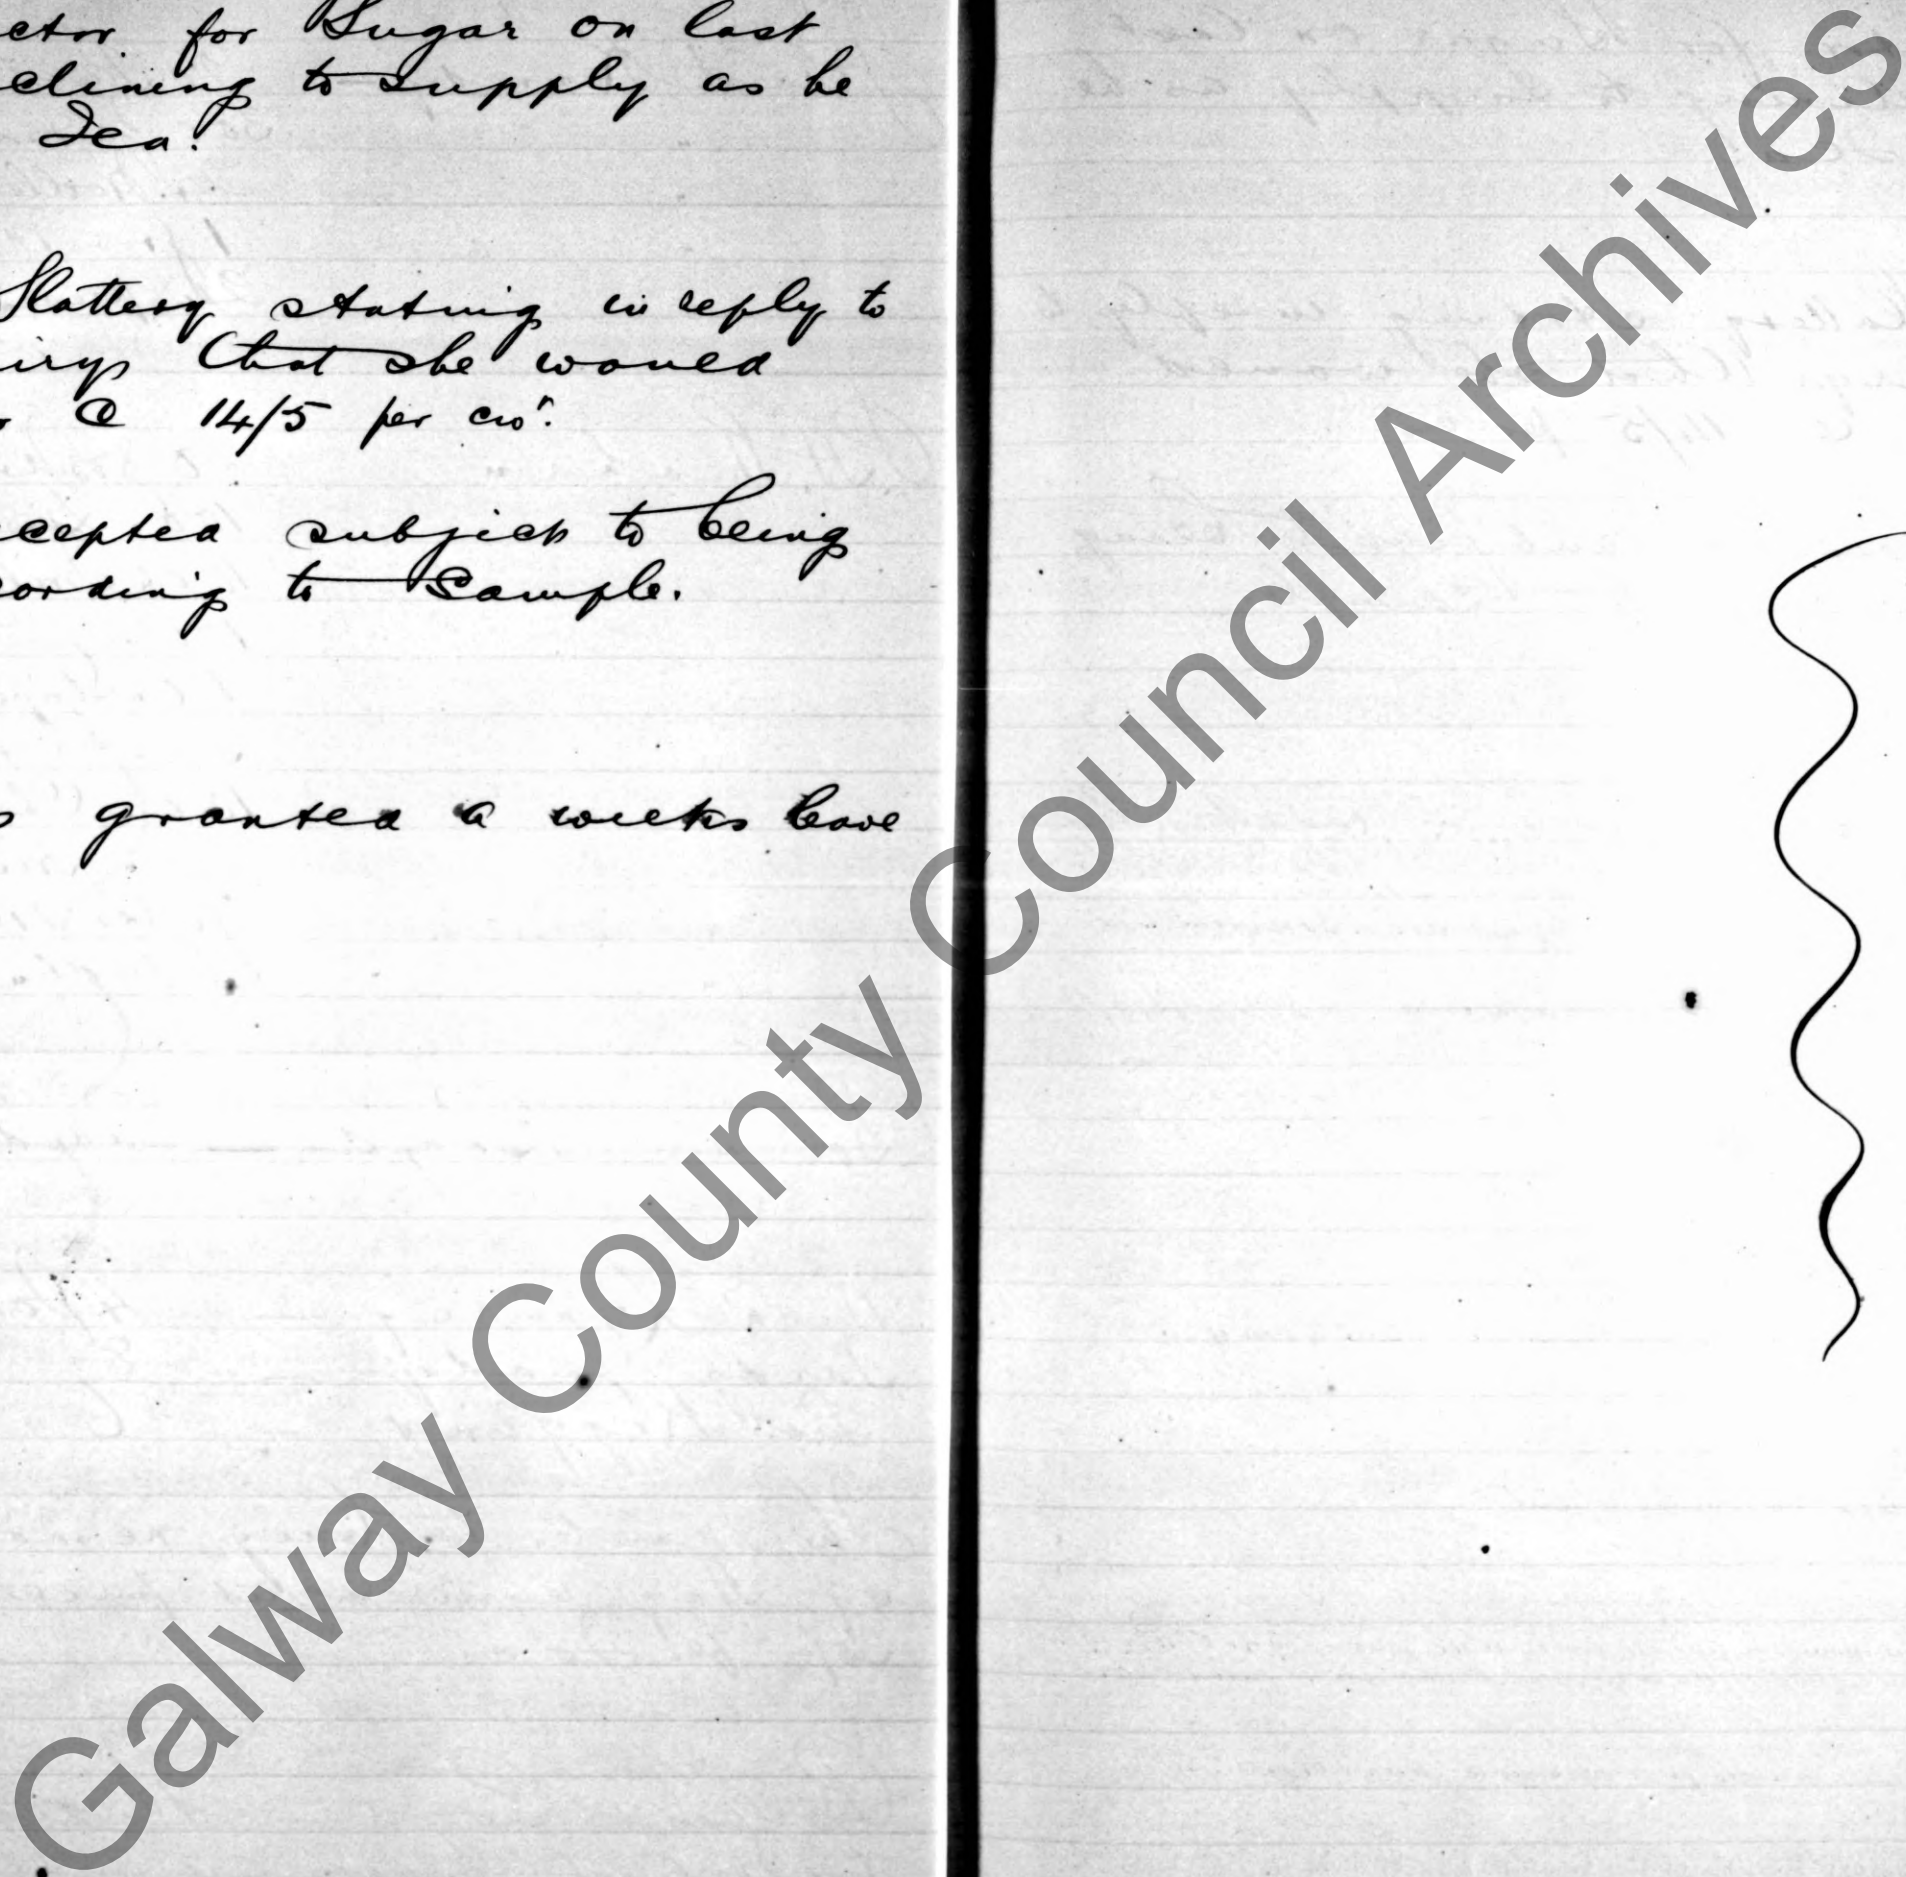 ctor for Sugar on last
clining to supply as he
Tea.
Slattery stating in reply to
iry that she would
@ 14/5 per cwt.
ccepted subject to being
cording to Sample.
granted a weeks leave
Galway County Council Archives